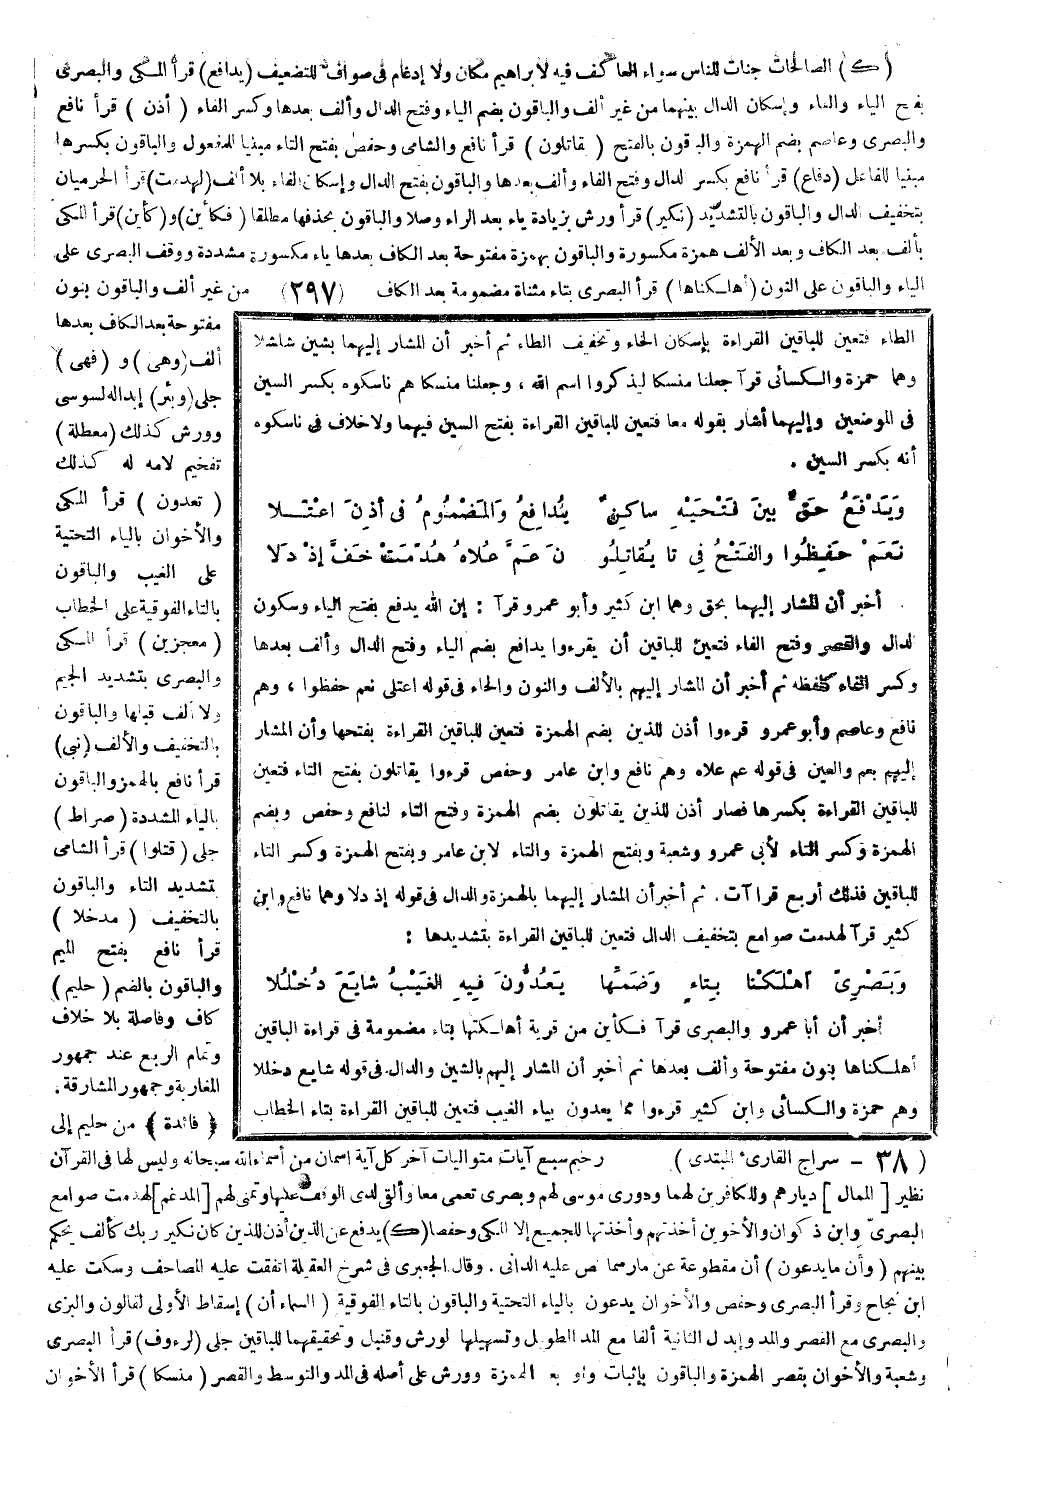 ( ك ) الصالحات جنات للناس سواء العاكف فيه لابراهيم مكان ولا إدغام فى صواف للتضعيف (يدافع) قرأ المكى والبصرى
بفتح الياء والفاء وإسكان الدال بينهما من غير ألف والباقون بضم الياء وفتح الدال وألف بعدها وكسر الفاء ( أذن ) قرأ نافع
والبصرى وعاصم بضم الهمزة والباقون بالفتح ( يقاتلون ) قرأ نافع والشامى وحفص بفتح التاء مبنيا للمفعول والباقون بكسرها
مبنيا للفاعل (دفاع) قرأ نافع بكسر الدال وفتح الفاء وألف بعدها والباقون بفتح الدال وإسكان الفاء بلا ألف (لهدمت) قرأ الحرميان
بتخفيف الدال والباقون بالتشديد (نكير) قرأ ورش بزيادة ياء بعد الراء وصلا والباقون بحذفها مطلقا (فكأين) و(كأين) قرأ المكى
بألف بعد الكاف وبعد الألف همزة مكسورة والباقون بهمزة مفتوحة بعد الكاف بعدها ياء مكسورة مشددة ووقف البصرى على
الياء والباقون على النون (أهلكناها) قرأ البصرى بتاء مثناة مضمومة بعد الكاف (٢٩٧) من غير ألف والباقون بنون
مفتوحة بعد الكاف بعدها
ألف (وهى) و (فهى)
جلى (وبئر) إبداله لسوسى
وورش كذلك (معطلة)
تفخيم لامه له كذلك
( تعدون ) قرأ المكى
والأخوان بالياء التحتية
على الغيب والباقون
بالتاء الفوقية على الخطاب
( معجزين ) قرأ المكى
والبصرى بتشديد الجيم
ولا ألف قبلها والباقون
بالتخفيف والألف (نبى)
قرأ نافع بالهمز والباقون
بالياء المشددة ( صراط )
جلى ( قتلوا ) قرأ الشامى
بتشديد التاء والباقون
بالتخفيف ( مدخلا )
قرأ نافع بفتح الميم
والباقون بالضم ( حليم )
كاف وفاصلة بلا خلاف
وتمام الربع عند جمهور
المغاربة وجمهور المشارقة .
﴿ فائدة ﴾ من حليم إلى
الطاء فتعين للباقين القراءة بإسكان الخاء وتخفيف الطاء ثم أخبر أن المشار إليهما بشين شلشلا
وهما حمزة والكسائى قرآ جعلنا منسكا ليذكروا اسم الله ، وجعلنا منسكا هم ناسكوه بكسر السين
فى الموضعين وإليهما أشار بقوله معا فتعين للباقين القراءة بفتح السين فيهما ولا خلاف فى ناسكوه
أنه بكسر السين .
وَيَدْفَعُ حَقٌّ بينَ فَتْحَيْهِ ساكِنٌ يُدافِعُ وَالمَضْمُومُ فى أذِنَ اعْتَلا
نَعَمْ حَفِظُوا والفَتْحُ فِي تا يُقاتِلُو نَ عَمَّ عُلاهُ هُدّمَتْ خَفَّ إذْ دَلا
أخبر أن المشار إليهما بحق وهما ابن كثير وأبو عمرو قرآ : إن الله يدفع بفتح الياء وسكون
الدال والقصر وفتح الفاء فتعين للباقين أن يقرءوا يدافع بضم الياء وفتح الدال وألف بعدها
وكسر الفاء كلفظه ثم أخبر أن المشار إليهم بالألف والنون والحاء فى قوله اعتلى نعم حفظوا ، وهم
نافع وعاصم وأبو عمرو قرءوا أذن للذين بضم الهمزة فتعين للباقين القراءة بفتحها وأن المشار
إليهم بعم والعين فى قوله عم علاه وهم نافع وابن عامر وحفص قرءوا يقاتلون بفتح التاء فتعين
للباقين القراءة بكسرها فصار أذن للذين يقاتلون بضم الهمزة وفتح التاء لنافع وحفص وبضم
الهمزة وكسر التاء لأبى عمرو وشعبة وبفتح الهمزة والتاء لابن عامر وبفتح الهمزة وكسر التاء
للباقين فذلك أربع قرآآت . ثم أخبر أن المشار إليهما بالهمزة والدال فى قوله إذ دلا وهما نافع وابن
كثير قرآ لهدمت صوامع بتخفيف الدال فتعين للباقين القراءة بتشديدها :
وَبَصْرِىّ أهْلَكْنا بِتاءٍ وَضَمّها يَعُدُّونَ فِيهِ الغَيْبُ شايَعَ دُخْلُلا
أخبر أن أبا عمرو والبصرى قرآ فكأين من قرية أهلكتها بتاء مضمومة فى قراءة الباقين
أهلكناها بنون مفتوحة وألف بعدها ثم أخبر أن المشار إليهم بالشين والدال فى قوله شايع دخللا
وهم حمزة والكسائى وابن كثير قرءوا مما يعدون بياء الغيب فتعين للباقين القراءة بتاء الخطاب
( ٣٨ - سراج القارئ المبتدى ) رحيم سبع آيات متواليات آخر كل آية اسمان من أسماء الله سبحانه وليس لها فى القرآن
نظير [ الممال ] ديارهم وللكافرين لهما ودورى موسى لهم وبصرى تعمى معا وألقى لدى الوقف عليها وتمنى لهم [المدغم] لهدمت صوامع
البصرىّ وابن ذكوان والأخوين أخذتهم وأخذتها للجميع إلا المكى وحفصا (ك) يدفع عن الذين أذن للذين كان نكير ربك كألف يحكم
بينهم ( وأن ما يدعون ) أن مقطوعة عن ما رسما نص عليه الدانى . وقال الجعبرى فى شرح العقيلة اتفقت عليه المصاحف وسكت عليه
ابن نجاح وقرأ البصرى وحفص والأخوان يدعون بالياء التحتية والباقون بالتاء الفوقية ( السماء أن ) إسقاط الأولى لقالون والبزى
والبصرى مع القصر والمد وإبدال الثانية ألفا مع المد الطويل وتسهيلها لورش وقنبل وتحقيقهما للباقين جلى (لرءوف) قرأ البصرى
وشعبة والأخوان بقصر الهمزة والباقون بإثبات واو بعد الهمزة وورش على أصله فى المد والتوسط والقصر ( منسكا ) قرأ الأخوان